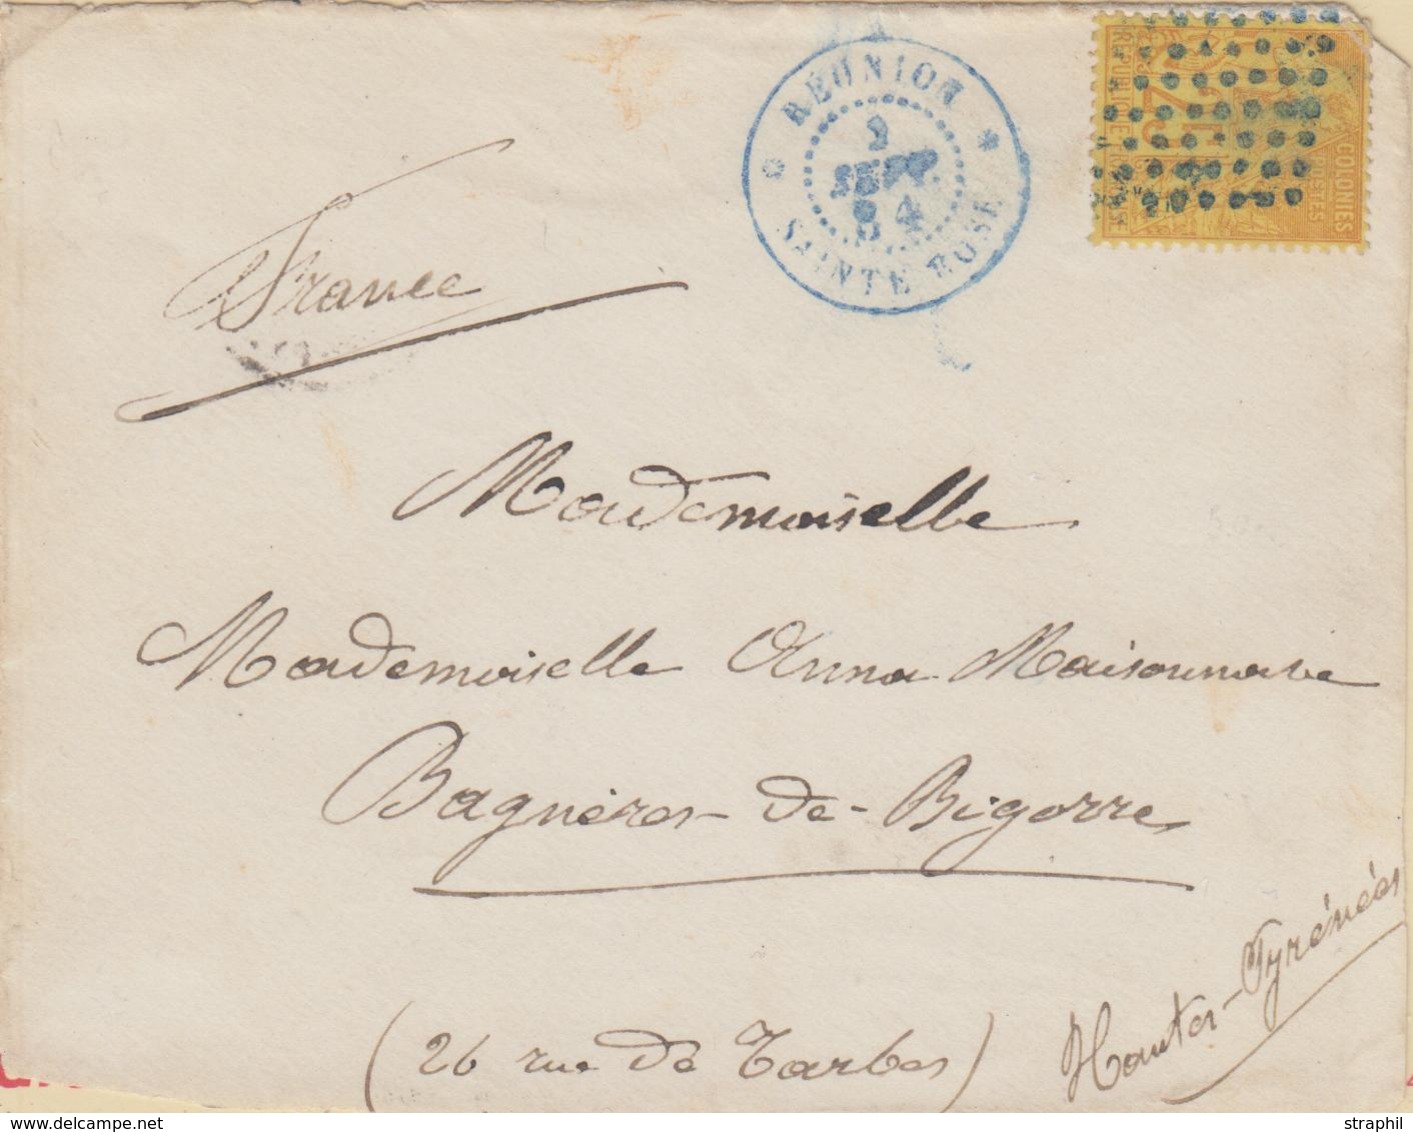 RÉUNION
2
SEPT.
84
SAINTE ROSE
COLONIES
POSTES
25
RÉPUBLIQUE FRANÇAISE
France
Mademoiselle
Mademoiselle Anna Maisonnave
Bagnères-de-Bigorre
(26 rue de Tarbes)
Hautes-Pyrénées
www.delcampe.net
straphil